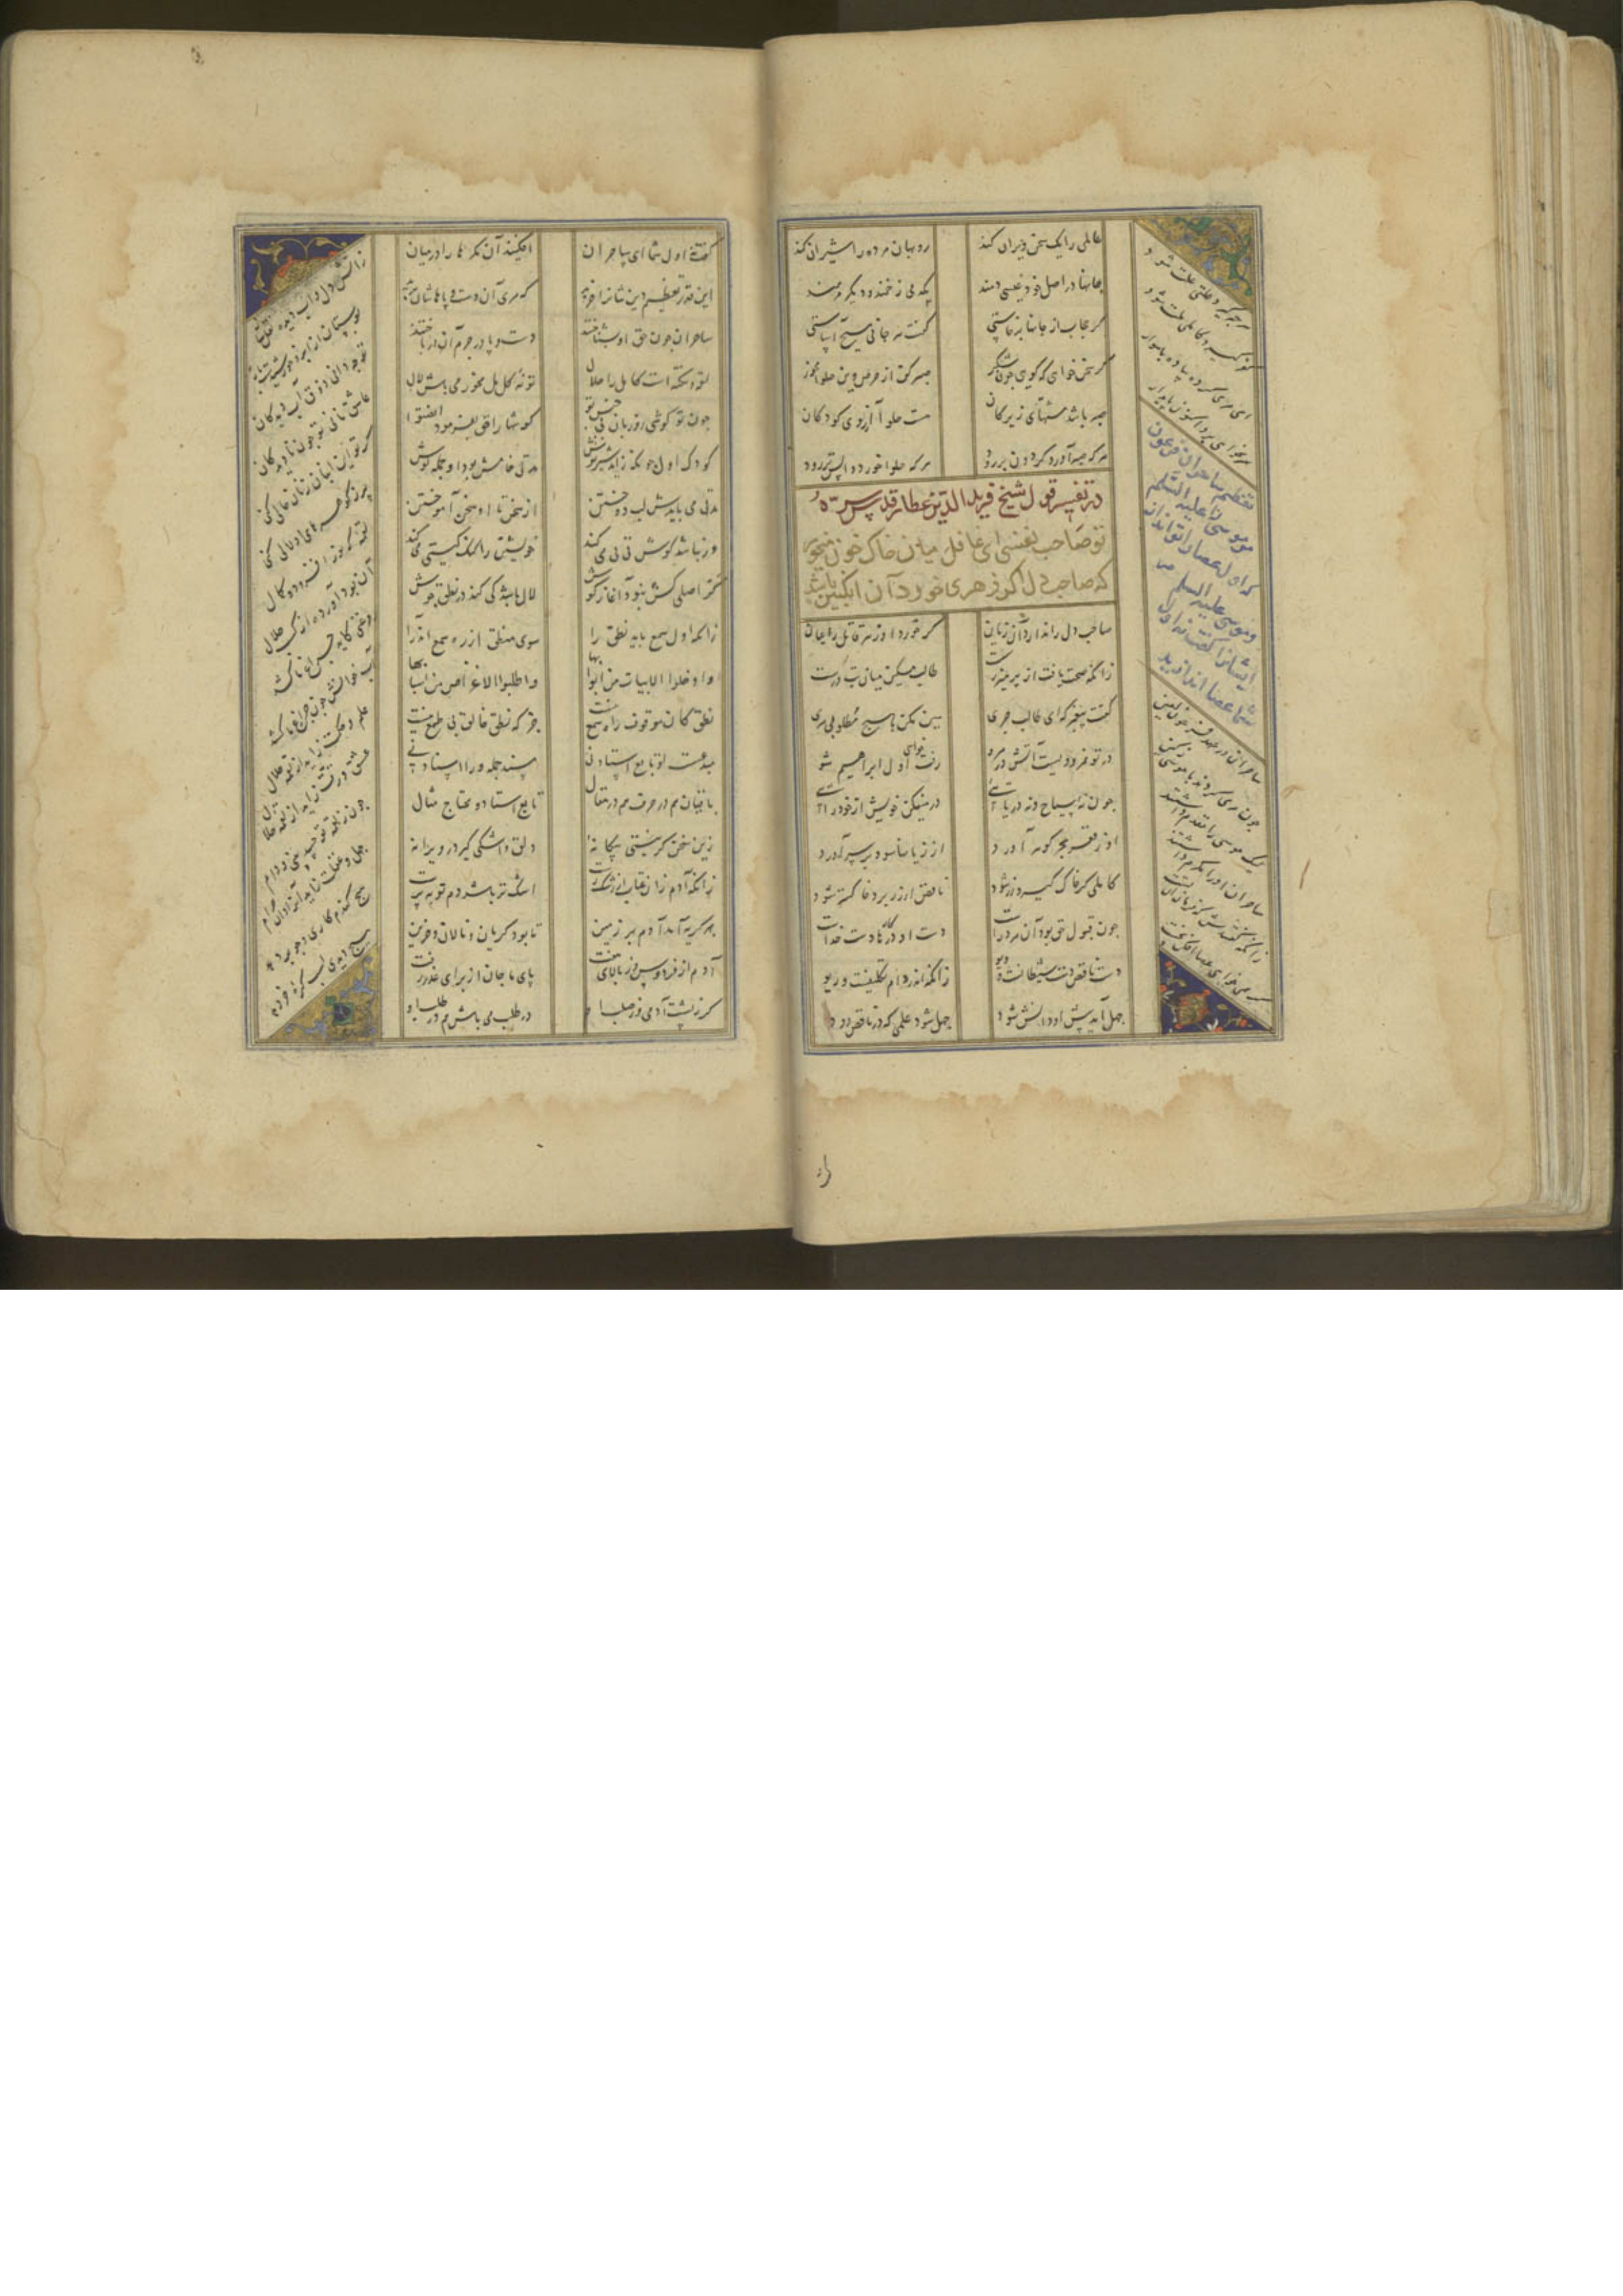 عالمی را یک سخن ویران کند
روبهان مرده را شیران کند
جانها در اصل خود عیسی دمند
یکدمی زخمند و دیگر مرهمند
گر حجاب از جانها برخاستی
گفت هر جانی مسیح آساستی
گر سخن خواهی که گویی چون شکر
صبر کن از حرص و این حلوا مخور
صبر باشد مشتهای زیرکان
هست حلوا آرزوی کودکان
هر که صبر آورد گردون بررود
هر که حلوا خورد واپس‌تر رود
در تفسیر قول شیخ فریدالدین عطار قدس سره
تو صاحب نفسی ای غافل میان خاک خون میخور
که صاحب دل اگر زهری خورد آن انگبین باشد
صاحب دل را ندارد آن زیان
گر خورد او زهر قاتل را عیان
زانکه صحت یافت از پرهیز رست
طالب مسکین میان تب درست
گفت پیغمبر که ای طالب جری
هین مکن با هیچ مطلوبی مری
در تو نمرودیست آتش در مرو
رفت خواهی اول ابراهیم شو
چون نه سباح و نه دریایی
در میفکن خویش از خودرایی
او ز قعر بحر گوهر آورد
از زیانها سود بر سر آورد
کاملی گر خاک گیرد زر شود
ناقص ار زر برد خاکستر شود
چون قبول حق بود آن مرد راست
دست او در کارها دست خداست
دست ناقص دست شیطانست و دیو
زانکه اندر دام تکلیفست و ریو
جهل آید پیش او دانش شود
جهل شد علمی که در ناقص رود
هرچه گیرد علتی علت شود
کفر گیرد کاملی ملت شود
ای مری کرده پیاده با سوار
سر نخواهی برد اکنون پای دار
تعظیم ساحران فرعون
موسی را علیه السلم
که اول عصا تو انداز
و موسی علیه السلم
ایشانرا گفت نه اول
شما عصا اندازید
ساحران در عهد فرعون لعین
چون مری کردند با موسی بکین
لیک موسی را مقدم داشتند
ساحران او را مکرم داشتند
زانکه گفتندش که فرمان آن تست
گفت نی اول شما ای ساحران
افکنید آن مکرها را در میان
این قدر تعظیم دین شانرا خرید
کز مری آن دست و پاهاشان برید
ساحران چون حق او بشناختند
دست و پا در جرم آن در باختند
لقمه و نکته است کامل را حلال
تو نه کامل مخور می باش لال
چون تو گوشی او زبان نی جنس تو
گوشها را حق بفرمود انصتوا
کودک اول چون بزاید شیرنوش
مدتی خامش بود او جمله گوش
مدتی می بایدش لب دوختن
از سخن تا او سخن آموختن
ور نباشد گوش تی تی می کند
خویشتن را گنگ گیتی می کند
کر اصلی کش نبود آغاز گوش
لال باشد کی کند در نطق جوش
زانکه اول سمع باید نطق را
سوی منطق از ره سمع اندرآ
وادخلوا الابیات من ابوابها
واطلبوا الاغراض من اسبابها
نطق کان موقوف راه سمع نیست
جز که نطق خالق بی طمع نیست
مبدعست او تابع استاد نی
مسند جمله ورا اسناد نی
باقیان هم در حرف هم در مقال
تابع استاد و محتاج مثال
زین سخن گر نیستی بیگانه
دلق و اشکی گیر در ویرانه
زانکه آدم زان عتاب از اشک رست
اشک تر باشد دم توبه پرست
بهر گریه آمد آدم بر زمین
تا بود گریان و نالان و حزین
آدم از فردوس و از بالای هفت
پای ماچان از برای عذر رفت
گر ز پشت آدمی وز صلب او
در طلب می باش هم در طلب او
ز آتش دل و آب دیده نقل ساز
بوستان از ابر و خورشیدست باز
تو چه دانی ذوق آب دیدگان
عاشق نانی تو چون نادیدگان
گر تو این انبان ز نان خالی کنی
پر ز گوهرهای اجلالی کنی
لقمه کو نور افزود و کمال
آن بود آورده از کسب حلال
روغنی کاید چراغ ما کشد
آب خوانش چون چراغی را کشد
علم و حکمت زاید از لقمه حلال
عشق و رقت زاید از لقمه حلال
چون ز لقمه تو حسد بینی و دام
جهل و غفلت زاید آنرا دان حرام
هیچ گندم کاری و جو بر دهد
هیچ دیدی اسب کره خر دهد